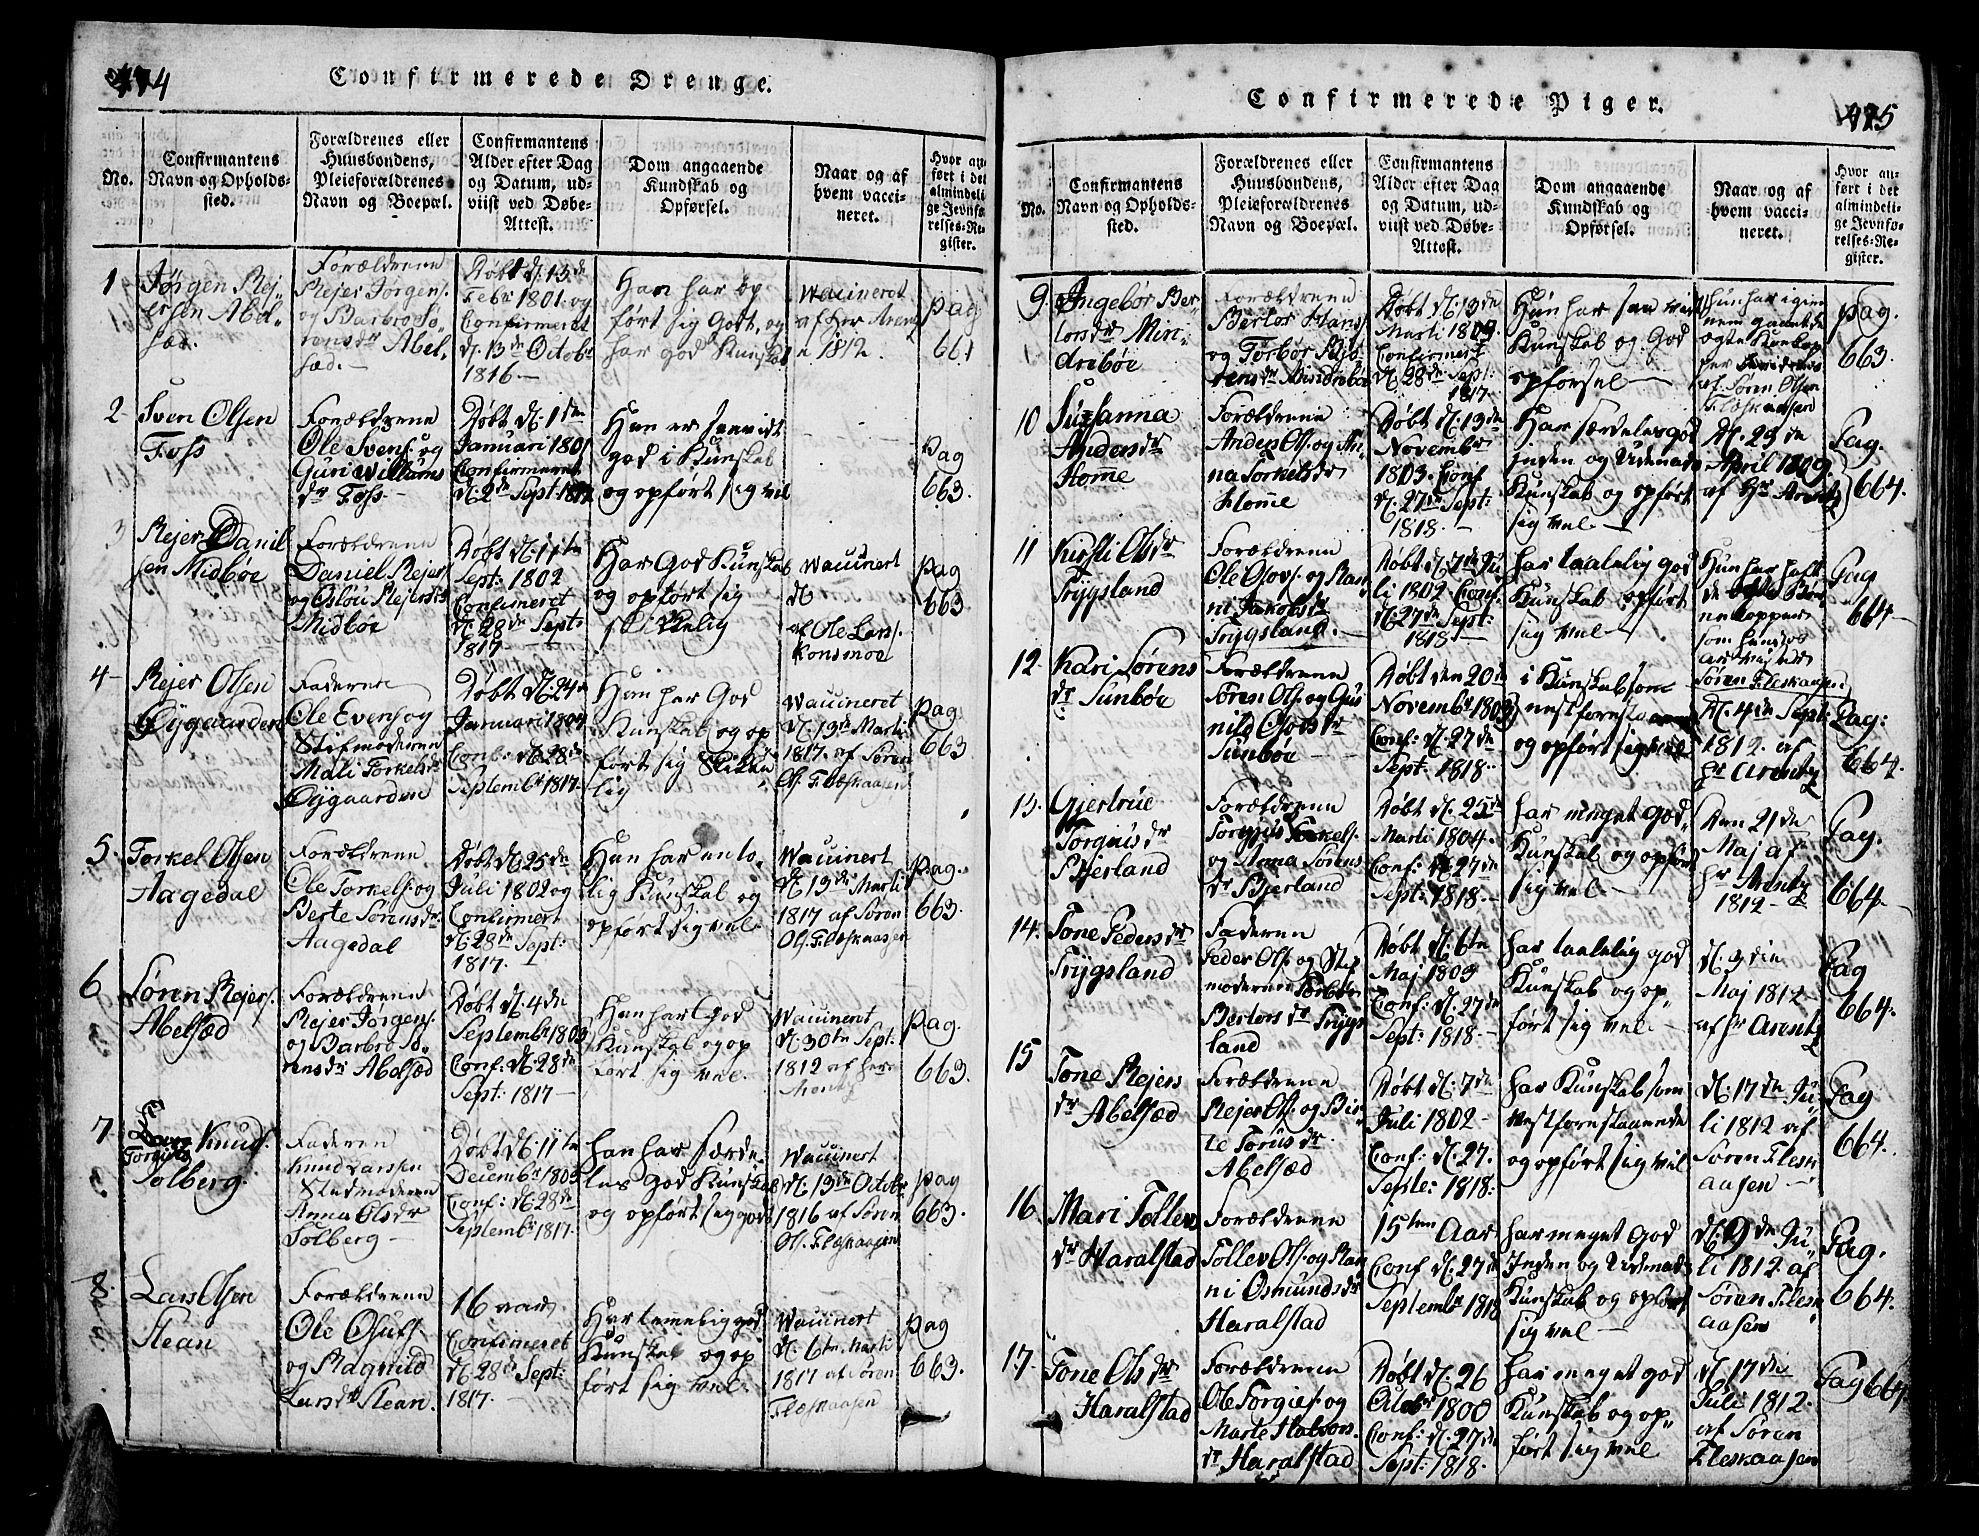 474
Confirmerede Drenge.
No.
Confirmantens
Navn og Opholds-
sted.
Forældrenes eller
Huusbondens,
Pleieforældrenes
Navn og Boepæl.
Confirmantens
Alder efter Dag
og Datum, ud-
viist ved Døbe-
Attest.
Dom angaaende
Kundskab og
Opførsel.
Naar og af
hvem vacci-
neret.
Hvor an-
ført i det
almindeli-
ge Jevnfø-
relses-Re-
gister.
1
Jørgen Rej-
ersen Abel-
sæd.
Forældrene
Rejer Jørgens.
og Barbro Sø-
rensdr Abel-
sæd.
Døbt d. 13de
Febr 1801. og
Confirmeret
d. 13de Octobr
1816.
Han har op
ført sig Godt, og
har god Kunskab
Waccineret
af Her Arentz
i 1812.
Pag
661
2
Sven Olsen
Foss
Forældrene
Ole Svens. og
Guri Willums
dr Foss
Døbt d. 1de
Januari 1801
Confirmeret
d. 2de Sept: 1817
Han er saavidt
god i Kunskab
og opført sig vel
Pag
663.
3
Rejer Daniel
sen Midbøe
Forældrene
Daniel Rejers.
og Oslou Rejersdr
Midbøe
Døbt d. 11te
Sept: 1802
Confirmeret
d. 28de Sept:
1817
Har God Kunskab
og opført sig
skikkelig
Waccinert
d.
af Ole Lars.
Konsmoe
Pag
663
4
Rejer Olsen
Øygaarden
Faderen
Ole Evens. og
Stifmoderen
Mali Torkelsdr
Øygaarden
Døbt d. 24de
Januari 1804
Conf: d. 28de
Septembr 1817.
Han har God
Kunskab og op
ført sig Skikke
lig
Waccineret
d. 13de Marti
1817. af Søren
Ols. Fleskaasen
Pag
663
5.
Torkel Olsen
Aagedal
Forældrene
Ole Torkels. og
Berte Sørensdr
Aagedal
Døbt d. 25de
Juli 1802 og
Confirmert
d. 28de Sept:
1817.
Han har en to-
lig Kunskab og
opført sig vel
Waccinert
d. 13de Marti
1817 af Søren
Ols. Fleskaasen
Pag.
663.
6
Søren Rejers.
Abelsæd
Forældrene
Rejer Jørgens.
og Barbro Sø-
rensdr Abelsæd
Døbt d. 4de
Septembr 1803
Conf: d. 28de
Sept: 1817
Han har God
Kunskab og op
ført sig vel.
Waccinert
d. 30te Sept:
1812 af herr
Arentz
Pag.
663.
7
Torgius Knuds.
Solberg.
Faderen
Knud Larssen
Stedmoderen
Anna Olsdr
Solberg
Døbt d. 11te
Decembr 1803
Conf: d. 28de
Septembr 1817.
Han har særde-
les god Kunskab
og opført sig godt
Waccinert
d. 13de Octobr
1816 af Søren
Ols. Fleskaasen
Pag
663.
8.
Lars Olsen
Stean
Forældrene
Ole Olufs.
og Ragnild
Larsdr Stean.
16 Aar.
Confirmeret
d. 28de Sept:
1817.
Har temmelig god
Kunskab og op
ført sig vel.
Waccinert
d. 6te Marti
1817 af Søren
Fleskaasen
Pag
663.
475
Confirmerede Piger.
No.
Confirmantens
Navn og Opholds-
sted.
Forældrenes eller
Huusbondens,
Pleieforældrenes
Navn og Boepæl.
Confirmantens
Alder efter Dag
og Datum, ud-
viist ved Døbe-
Attest.
Dom angaaende
Kundskab og
Opførsel.
Naar og af
hvem vacci-
neret.
Hvor an-
ført i det
almindeli-
ge Jevnfø-
relses-Re-
gister.
9.
Ingebor Ber-
torsdr Min-
dribøe
Forældrene
Bertor Hans.
og Torbør
Mindribøe
Døbt d. 13de
Marti 1803
Confirmert
d. 28de Sept:
1817.
Hun har saa
Kunskab og God
opførsel
Hun har igien
nem gaaet de
ægte Kinkop
per
af Søren Olsen
Fleskaasen
Pag.
663.
10
Susanna
Andersdr
Homme
Forældrene
Anders Ols. og An-
na Torkelsdr
Homme
Døbt d. 13de
Novembr
1803. Conf
d. 27de Sept:
1818.
Har særdeles god
inden og Udenads
Kunskab og opført
sig vel
d. 23de
April 1809.
af Hr Arentz
Pag.
664.
11
Kirsti Olsdr
Trygsland
Forældrene
Ole Olovs. og Ran-
ni Jacobsdr
Trygsland.
Døbt d. 7de Ju
li 1802 Conf.
d. 27de Sept:
1818
har taalelig god
Kunskab, opført
sig vel
Hun har haft
de Bør
nekopper
som
Søren Fleskaasen
Pag
664
12.
Kari Sørens
dr Sunbøe
Forældrene
Søren Ols. og Gu-
nild Olovsdr
Sunbøe
Døbt den 20de
Novembr 1803
Conf: d. 27de
Sept: 1818.
i Kunskab som
nestforestaaende
og opført sig vel
d. 4de Sept:
1812. af
Hr Arentz
Pag:
664.
13.
Gjertrue
Torguisdr
Bjerland
Forældrene
Torgius Torkels.
og Anna Sørens
dr Bjerland
Døbt d. 25de
Marti 1804.
Conf: d. 27de
Sept: 1818.
har meget god
Kunskab og opført
sig vel
Den 21de
Maj af
Hr Arentz
1812
Pag.
664.
14.
Tone Pedersdr
Trygsland
Faderen
Peder Ols. og Stif
moderen Torbør
Bertorsdr Trygs
land
Døbt d. 6te
Maj 1803
Conf: d. 27de
Sept: 1818.
har taalelig god
Kunskab og op-
ført sig vel
d. 3die
Maj 1812
af Hr Arentz
Pag
664.
15
Tone Rejers
dr Abelsæd
Forældrene
Rejer Ols. og Bir-
te Torusdr
Abelsæd
Døbt d. 7de
Juli 1802
Conf: d. 27.
Septe: 1818:
har Kunskab som
nestforestaaende
og opført sig vel
d. 17de Ju-
li 1812 af
Søren Flesk
aasen
Pag
664.
16
Mari Tollevs
dr Haralstad
Forældrene
Tollev Ols. og Ran
ni Osmundsdr
Haralstad
15ten Aar
Conf d. 27de
Septembr 1818
har meget God
Inden og Udenads
Kunskab og opført
sig vel
d. 9de Ju-
li 1812 af
Søren Flesk
aasen
Pag.
664.
17.
Tone Olsdr
Haralstad
Forældrene
Ole Torgies. og
Marte Halvors.
dr Haralstad
Døbt d. 26
Octobr 1800
Conf: d. 27de
Sept: 1818.
har meget god
Kunskab og op-
ført sig vel
d. 17de
Juli 1812.
af Søren
Fleskaasen
Pag 664